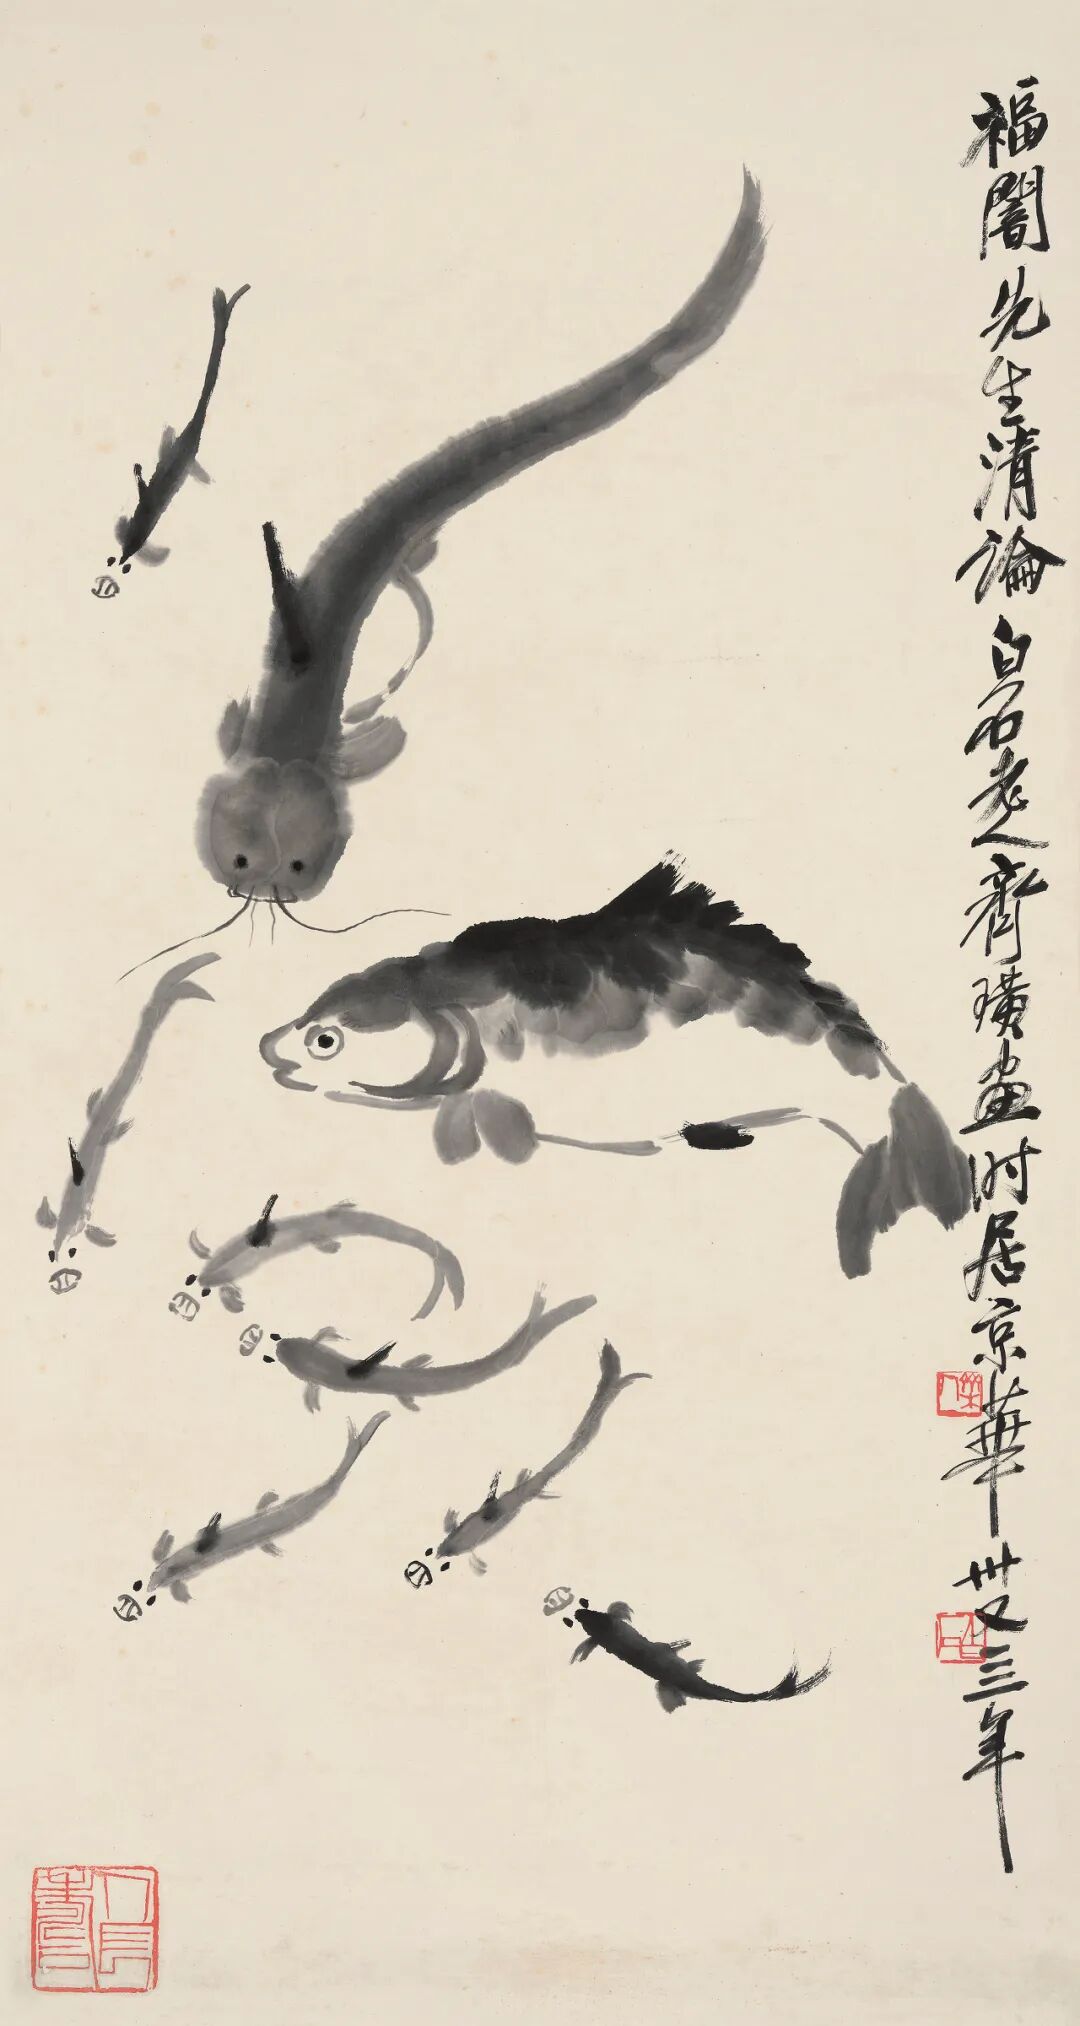 福闇先生清論白石老人齊璜畫时居京華卅又三年